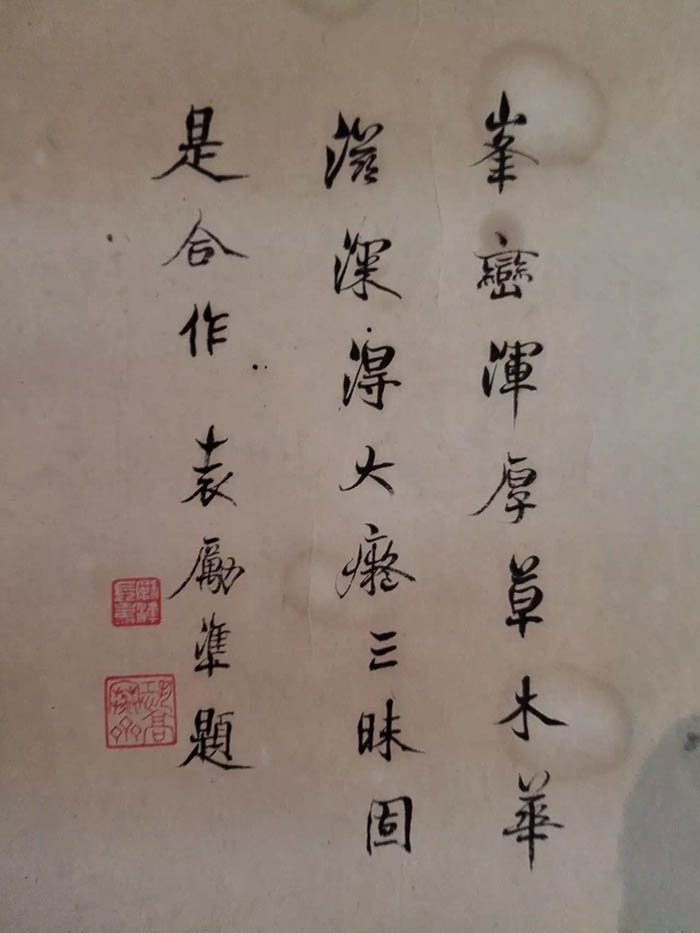 峯巒渾厚草木華
滋深得大癡三昧固
是合作 袁勵準題